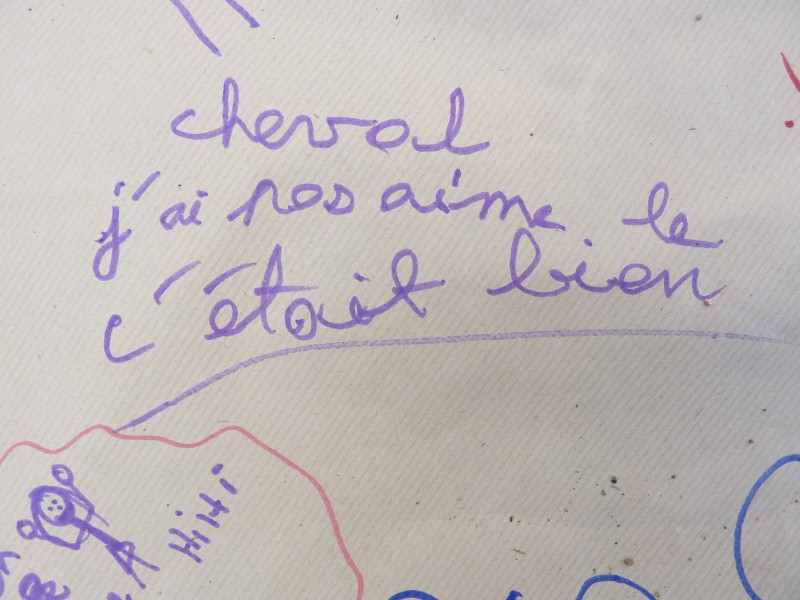 cheval
j'ai pas aime le
c'était bien
Hihi